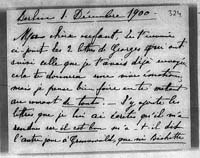 Berlin 1. Décembre 1900. 324
Ma chère enfant, Je t'envoie
ci joint les 2 lettres de Georges qui ont
suivi celle que je t'avais déjà envoyée
cela te donnera une
mais je pense bien faire en te mettant
au courant de toute. J'y ajoute les
lettre que je lui ai écrite qu'il m'a
rendue
l'autre jour à Grunewald, que